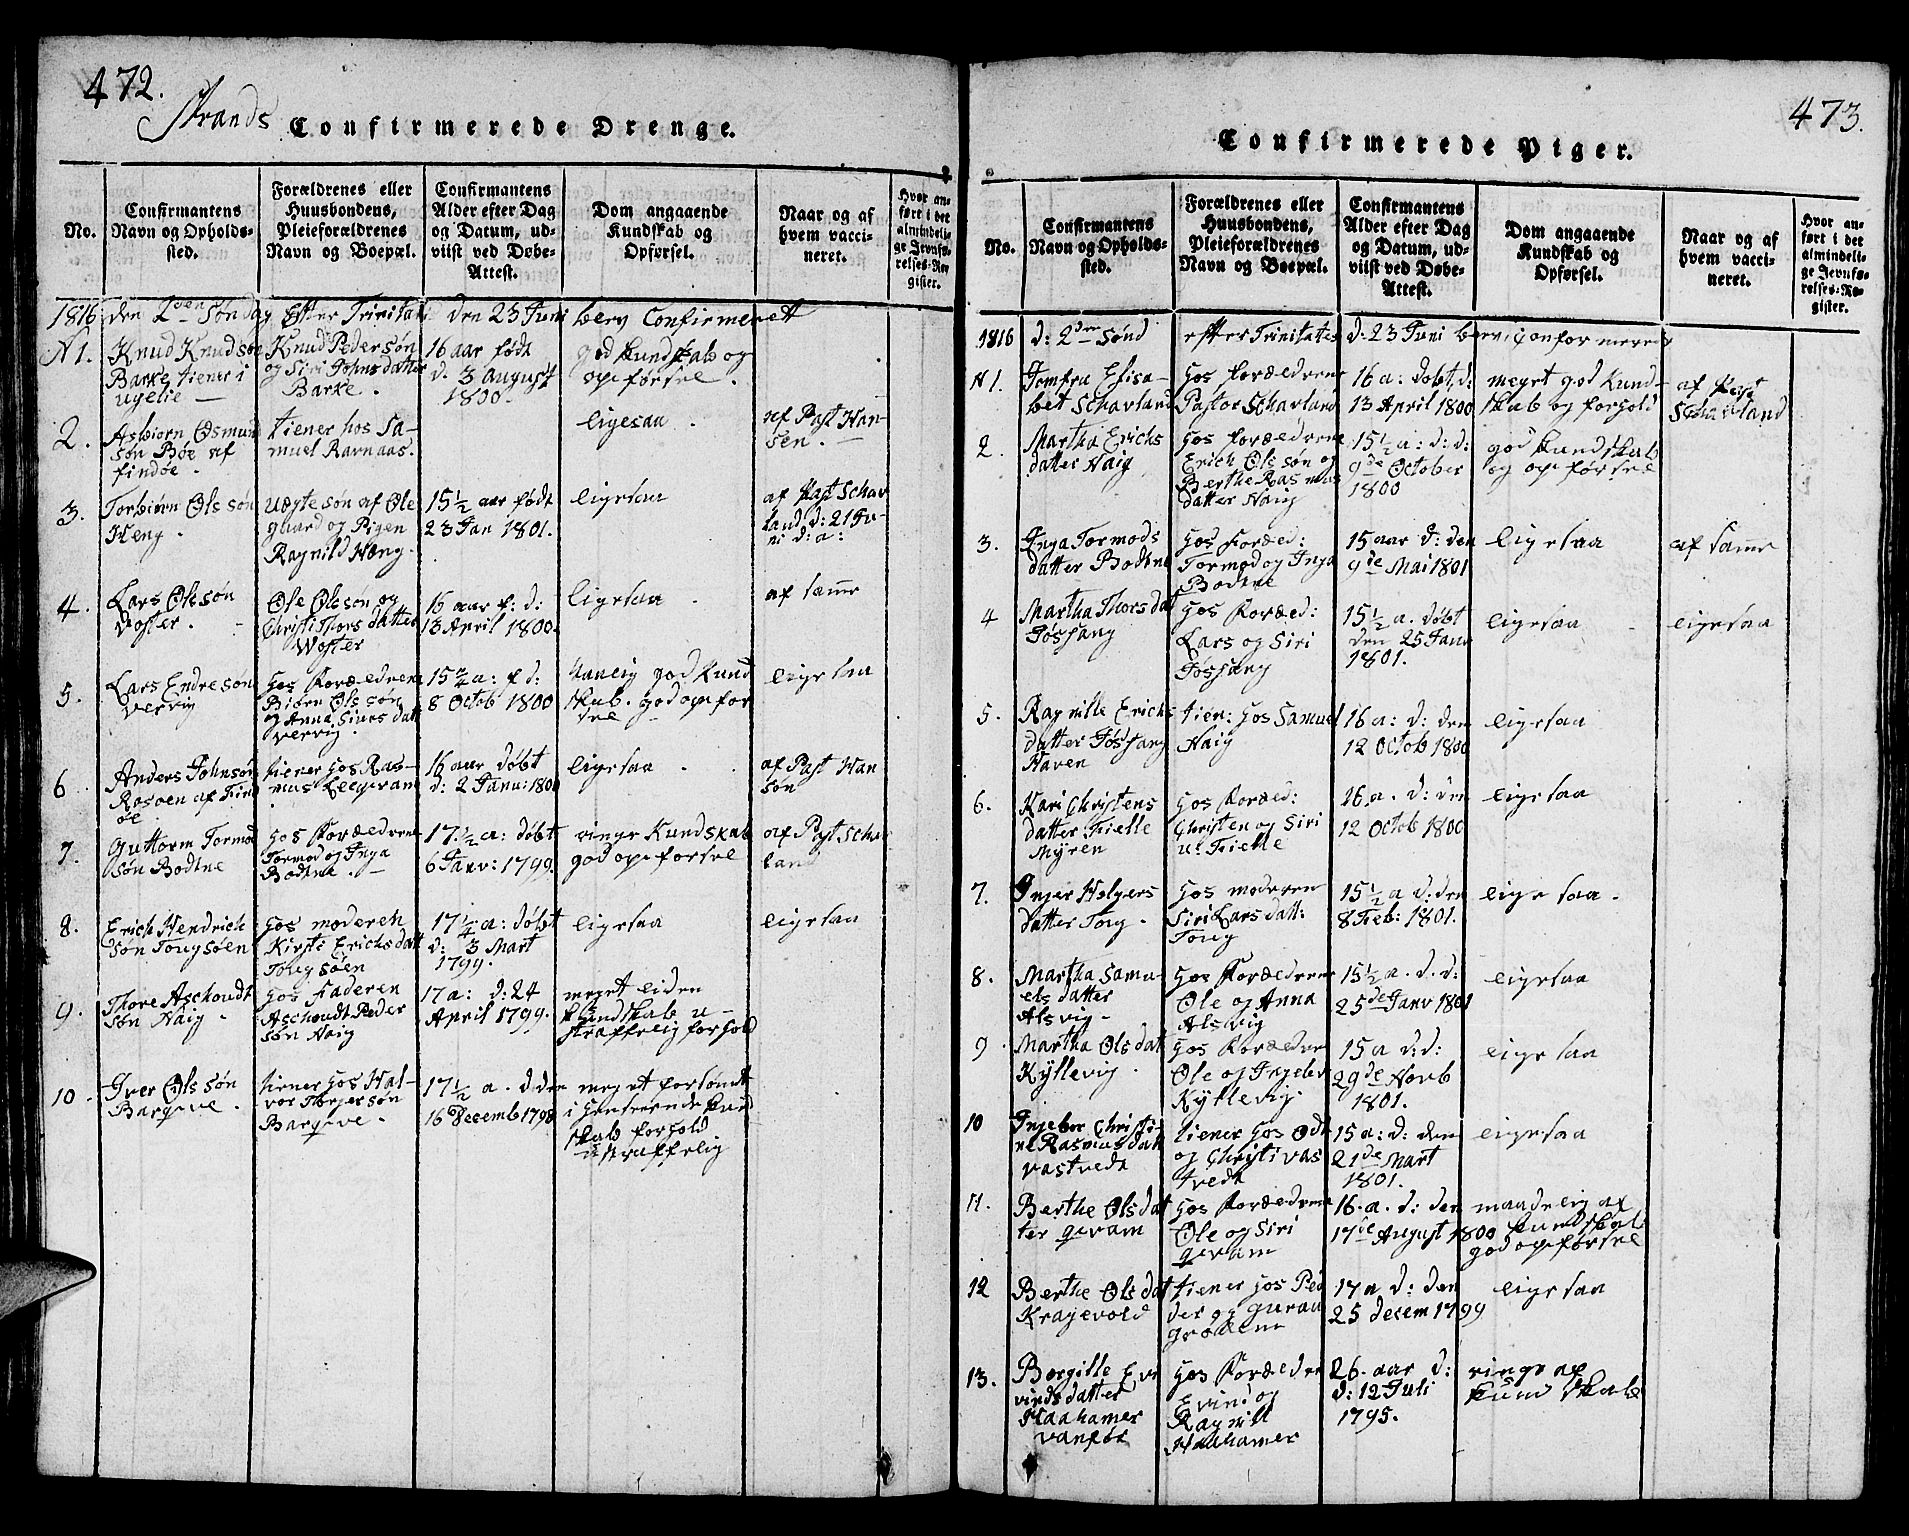 472.
Strands Confirmerede Drenge.
No.
Confirmantens
Navn og Opholds-
sted.
Forældrenes eller
Huusbondens,
Pleieforældrenes
Navn og Boepæl.
Confirmantens
Alder efter Dag
og Datum, ud-
viist ved Døbe-
Attest.
Dom angaaende
Kundskab og
Opførsel.
Naar og af
hvem vacci-
neret.
Hvor an-
ført i det
almindeli-
ge Jevnfø-
relses-Re-
gister.
1816 den 2den Søndag Efter Trinitati den 23 Juni blev Confirmeret
N 1.
Knud Knudsøn
Barke tiener i
Knud Pedersøn
og Siri Johnsdatter
Barke.
16 aar født
d. 3 August
1800
god kundskab og
opførsel.
2.
Asbiørn Osmund
søn Bøe af
findøe.
tiener hos Sa-
muel Ravnaas.
ligesaa.
af Past Han-
sen.
3.
Torbiørn Olssøn
Heng.
Uægte søn af Ole
gaard og Pigen
Ragnild Hæng.
15½ aar født
23 Jan 1801.
ligesaa
af Past Schav
land d: 21 Ju-
ni d: a:
4.
Lars Olssøn
Voster.
Ole Olsøn og
Christi Thorsdatter
Woster
16 aar f: d:
13 April 1800.
ligesaa.
af samme
5.
Lars Endresøn
Vervig
Hos Forældrene
Biørn Olssøn
og Anna Siursdatt
Vervig.
15¾ a: f d:
8 Octob 1800
Maadelig god Kund
skab. god opfør
sel
ligesaa
6
Anders Johnsøn
Rasoen af Find
øe
tiener hos Ras-
mus Leegeram
16 aar døbt
d: 2 Janu: 1800
ligesaa.
af Past Han
søn
7.
Guttorm Tormod
søn Bodtne
Hos Forældrene
Tormod og Inga
Bodtne.
17½ a: døbt
6 Janv: 1799.
ringe Kundskab
god opførsel
af Past Schav
land
8.
Erich Hendrich
søn Tougsøen
Hos moderen
Kirsti Erichsdatt
Tougsøen
17¼ a: døbt
d: 3 Mart
1799.
ligesaa
ligesaa
9.
Thore Aschoudt
søn Haig
Hos Faderen
Aschoudt Peder
søn Haig
17 a: d: 24
April 1799.
meget liden
kundskab u-
straffelig forhold
10.
Iver Olssøn
Bargeve.
tiener hos Hal-
vor Thorgersøn
Bargeve.
17½ a. d: den
16 Decemb 1798
meget forsømt
i henseende kund
skab forhold
ustraffelig
473.
Confirmerede Piger.
No.
Confirmantens
Navn og Opholds-
sted.
Forældrenes eller
Huusbondens,
Pleieforældrenes
Navn og Boepæl.
Confirmantens
Alder efter Dag
og Datum, ud-
viist ved Døbe-
Attest.
Dom angaaende
Kundskab og
Opførsel.
Naar og af
hvem vacci-
neret.
Hvor an-
ført i det
almindeli-
ge Jevnfø-
relses-Re-
gister.
1816 d: 2den Sønd efter Trinitates d: 23 Juni blev confor merede
N 1.
Jomfru Elisa-
bet Schavland
Hos forældrene
Pastor Schavland
16 a: døbt, d:
13 April 1800
meget god Kund-
skab og forhold
af Past
Schavland
2.
Martha Erichs
datter Haig
Hos forældrene
Erich Olssøn og
Berthe Rasmus
datter Haig
15½ a: d: d:
9de October
1800
god kundskab
og opførsel
3.
Inga Tormods
datter Bodtne
Hos Foræld:
Tormod og Inga
Bodtne
15 aar d: den
9de Mai 1801
ligesaa
af samme
4
Martha Thorsdat
Jøssang
Hos Foræld:
Lars og Siri
Jøssang
15½ a. døbt
den 25 Janu
1801.
ligesaa
ligesaa
5.
Ragnille Erichs
datter Jøssang
Haven
tien: Hos Samuel
Haig
16 a: d: den
12 Octob 1800
ligesaa
6.
Kari Christens
datter Fielle
Myren
Hos Foræld:
Christen og Siri
u: Fielle
16 a. d: den
12 Octob 1800
ligesaa
7.
Inger Holgers
datter Toug.
Hos moderen
Siri Larsdatt:
Toug
15½ a d: den
8 Feb: 1801.
ligesaa.
8.
Martha Samu-
elsdatter
Alsvig
Hos Forældrene
Ole og Anna
Alsvig
15½ a. d. d:
25de Janv 1801
ligesaa
9.
Martha Olsdatt
Kyllevig.
Hos Forældre
Ole og Ingebor
Kyllevig.
15 a d: d:
29de Novb
1801.
ligesaa
10
Ingebor Christi-
ne Rasmusdatt
Vastvedt
tiener hos Odt
og Christi Vas
tvedt
15 a: d: den
21de Mart
1801.
ligesaa
11.
Berthe Olsdat
ter qveam
Hos Forældrene
Ole og Siri
qveam
16. a. d: den
17de August 1800
maadelig af
kundskab
god opførsel
12
Berthe Olsdat
Kragevold
tiener hos Ped
der og Guraa
17 a d: den
25 decem 1799
ligesaa
13.
Børgille Ev
vindsdatter
Haahamer
vanfør
Hos Forældre
Evind og
Ragnill
Haahamer
26. aar d:
d: 12 Juli
1795.
ringe af
Kundskab